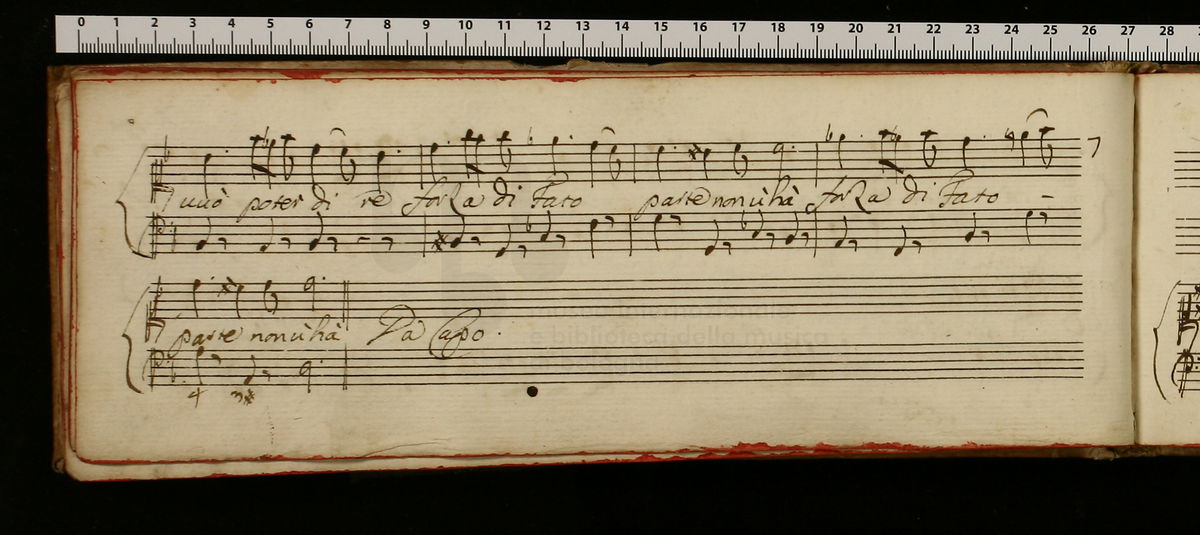 0 1 2 3 4 5 6 7 8 9 10 11 12 13 14 15 16 17 18 19 20 21 22 23 24 25 26 27 28
può poter di re forza di Fato parte non u'hà forza di Fato
parte non u'hà Da Capo.
4 3#
e biblioteca della musica